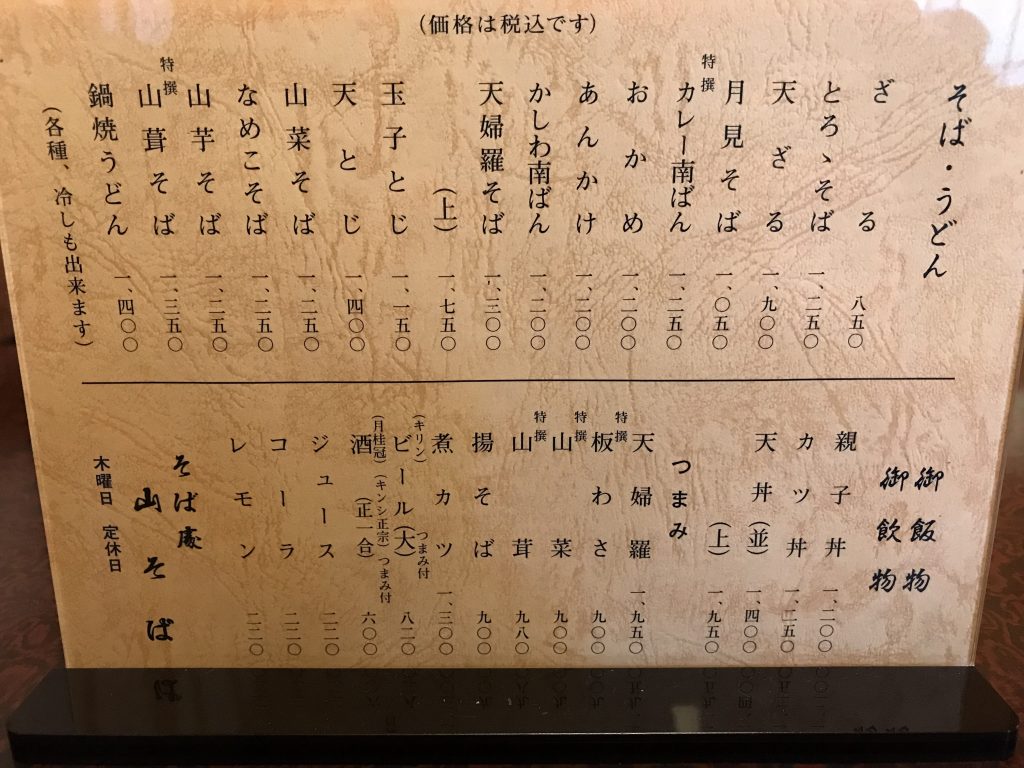 (価格は税込です)
そば・うどん
ざる 八五〇
とろゝそば 一、二五〇
天ざる 一、九〇〇
月見そば 一、〇五〇
特撰 カレー南ばん 一、二五〇
おかめ 一、二〇〇
あんかけ 一、二〇〇
かしわ南ばん 一、二〇〇
天婦羅そば 一、三〇〇
(上) 一、七五〇
玉子とじ 一、一五〇
天とじ 一、四〇〇
山菜そば 一、二五〇
なめこそば 一、二五〇
山芋そば 一、二五〇
特撰 山葺そば 一、三五〇
鍋焼うどん 一、四〇〇
(各種、冷しも出来ます)
御飯物
御飲物
親子丼 一、二〇〇
カツ丼 一、二五〇
天丼(並) 一、四〇〇
(上) 一、九五〇
つまみ
天婦羅 一、九五〇
特撰 板わさ 九〇〇
特撰 山菜 九〇〇
特撰 山葺 九八〇
揚そば 九〇〇
煮カツ 一、三〇〇
(キリン) つまみ付
ビール(大) 八二〇
(月桂冠)(キンシ正宗)つまみ付
酒(正一合) 六〇〇
ジュース 二二〇
コーラ 二二〇
レモン 二二〇
そば処
山そば
木曜日 定休日